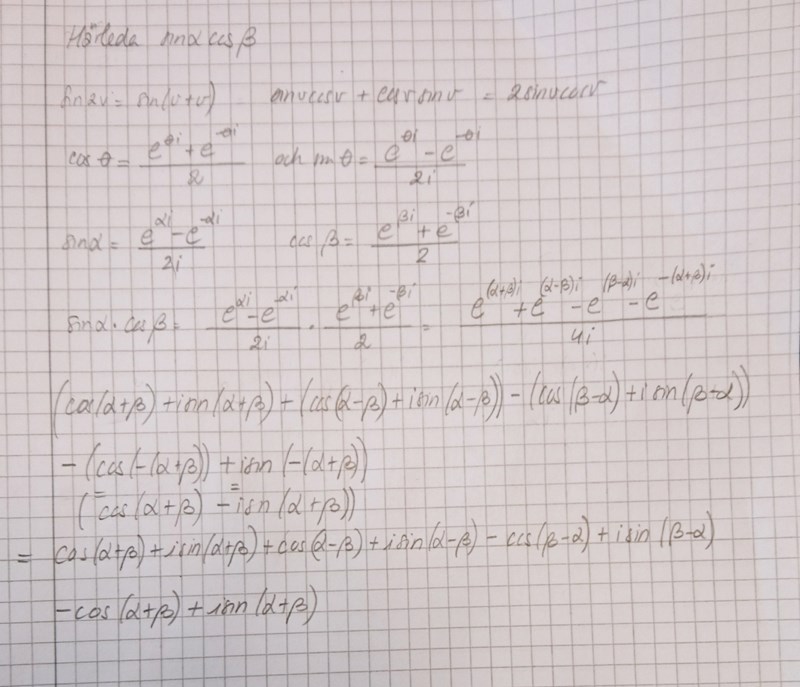 Härleda sinα cos β
sin2v = sin(v+v) sinvcosv + cosv sinv = 2sinvcosv
cos θ = (e^{θi} + e^{-θi})/2 och sin θ = (e^{θi} - e^{-θi})/2i
sinα = (e^{αi} - e^{-αi})/2i cos β = (e^{βi} + e^{-βi})/2
sinα · cos β = (e^{αi} - e^{-αi})/2i · (e^{βi} + e^{-βi})/2 = (e^{(α+β)i} + e^{(α-β)i} - e^{(β-α)i} - e^{-(α+β)i})/4i
(cos(α+β) + isin(α+β) + (cos(α-β) + isin(α-β)) - (cos(β-α) + isin(β-α))
- (cos(-(α+β)) + isin(-(α+β))
(= cos(α+β) = - isin(α+β))
= cos(α+β) + isin(α+β) + cos(α-β) + isin(α-β) - cos(β-α) + isin(β-α)
- cos(α+β) + isin(α+β)